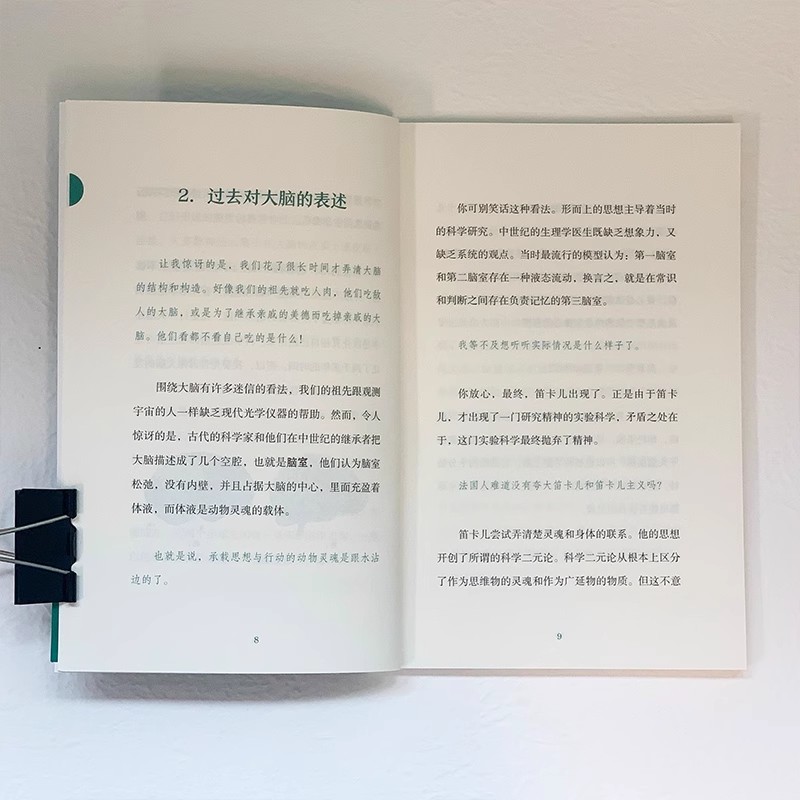 2. 过去对大脑的表述
让我惊讶的是，我们花了很长时间才弄清大脑
的结构和构造。好像我们的祖先就吃人肉，他们吃敌
人的大脑，或是为了继承亲戚的美德而吃掉亲戚的大
脑。他们看都不看自己吃的是什么！
围绕大脑有许多迷信的看法，我们的祖先跟观测
宇宙的人一样缺乏现代光学仪器的帮助。然而，令人
惊讶的是，古代的科学家和他们在中世纪的继承者把
大脑描述成了几个空腔，也就是脑室，他们认为脑室
松弛，没有内壁，并且占据大脑的中心，里面充盈着
体液，而体液是动物灵魂的载体。
也就是说，承载思想与行动的动物灵魂是跟水沾
边的了。
8
你可别笑话这种看法。形而上的思想主导着当时
的科学研究。中世纪的生理学医生既缺乏想象力，又
缺乏系统的观点。当时最流行的模型认为：第一脑室
和第二脑室存在一种液态流动，换言之，就是在常识
和判断之间存在负责记忆的第三脑室。
我等不及想听听实际情况是什么样子了。
你放心，最终，笛卡儿出现了。正是由于笛卡
儿，才出现了一门研究精神的实验科学，矛盾之处在
于，这门实验科学最终抛弃了精神。
法国人难道没有夸大笛卡儿和笛卡儿主义吗？
笛卡儿尝试弄清楚灵魂和身体的联系。他的思想
开创了所谓的科学二元论。科学二元论从根本上区分
了作为思维物的灵魂和作为广延物的物质。但这不意
9